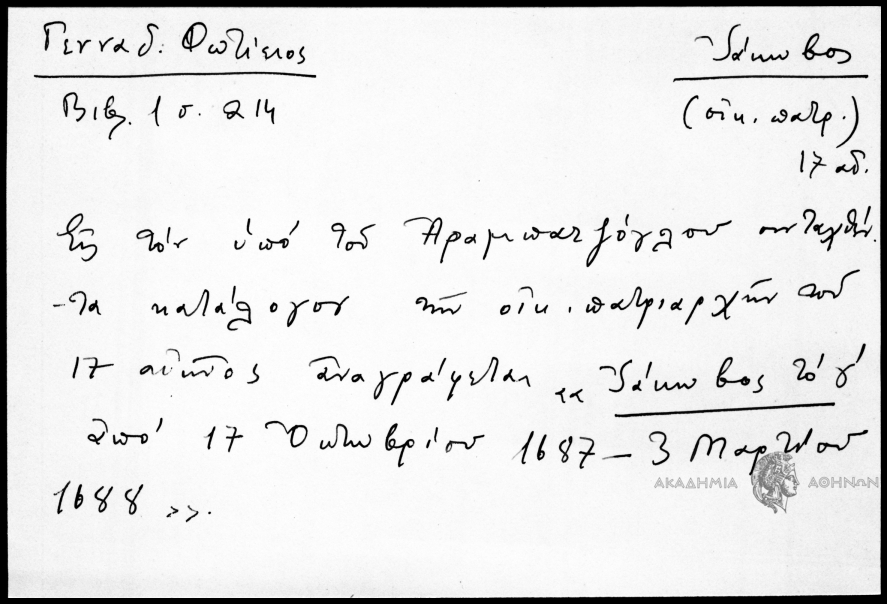 Γενναδ. Φωτίειος Ἰάκωβος
Βιβλ. 1 σ. 214 (οἰκ. πατρ.)
17 αἰ.
Εἰς τὸν ὑπό τοῦ Ἀραμπατζόγλου συνταχθέν-
-τα κατάλογον τῶν οἰκ. πατριαρχῶν τοῦ
17 αἰῶνος ἀναγράφεται «Ἰάκωβος τό γ'
ἀπό 17 Ὀκτωβρίου 1687 – 3 Μαρτίου
1688 ».
ΑΚΑΔΗΜΙΑ ΑΘΗΝΩΝ